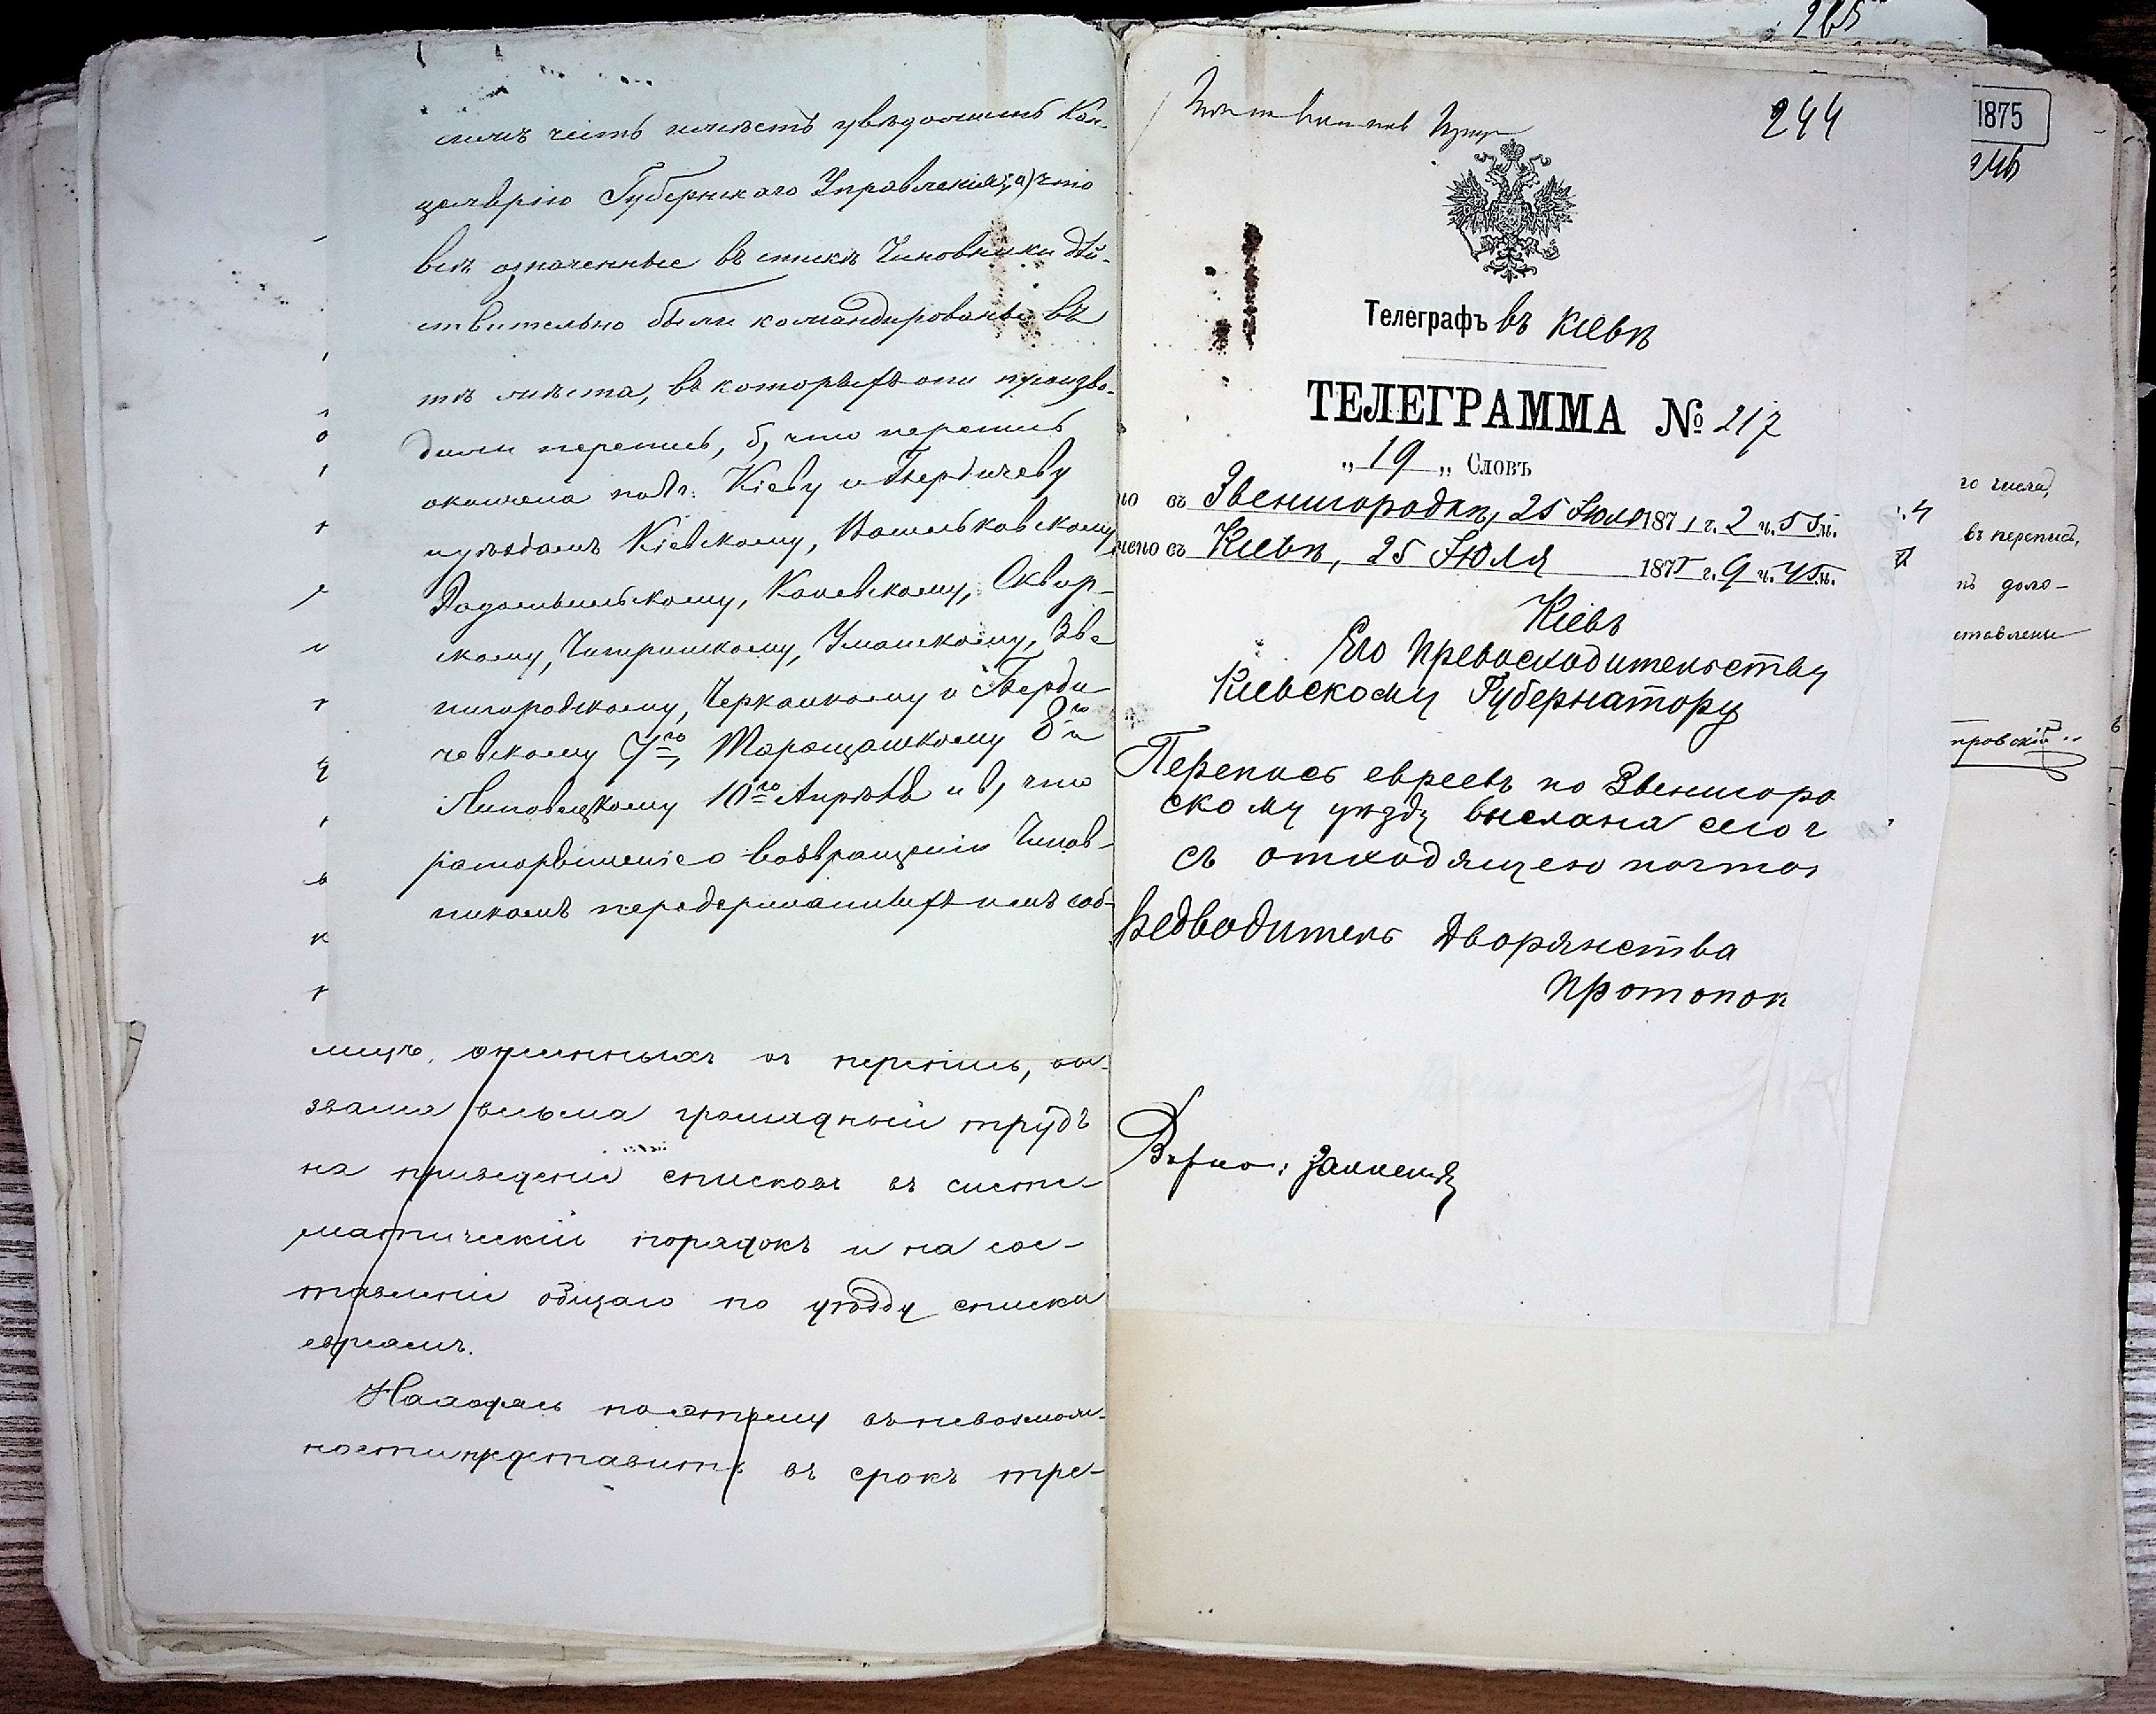 симъ честь имѣетъ увѣдомить Кан-
целярію Губернскаго Управленія; а) что
всѣ означенные въ спискѣ Чиновники дѣй-
ствительно были командированы въ
тѣ мѣста, въ которыхъ они произво-
дили перепись, б) что перепись
окончена по г. Кіеву и Бердичеву
и уѣздамъ Кіевскому, Васильковскому,
Радомысльскому, Каневскому, Сквир-
скому, Чигиринскому, Уманскому, Зве
нигородскому, Черкасскому и Берди-
чевскому 7го, Таращанскому 8го и
Липовецкому 10го Апрѣля и в) что
распоряженіе о возвращеніи Чинов-
никамъ передержанныхъ ими соб-
лицъ, въ перепись, вы-
звала весьма громадный трудъ
на приведеніе списковъ въ систе-
матическій порядокъ и на сос-
тавленіе общаго по уѣзду списка
евреямъ.
Находясь поэтому въ невозмож-
ности представить въ срокъ тре-
265
244
Телеграфъ въ Кіевѣ
ТЕЛЕГРАММА № 217
„ 19 „ Словъ
но съ Звенигородки, 25 Іюля 187 г. 2 ч. 55 м.
чено съ Кіевѣ, 25 Іюля 1875 г. 9 ч. 45 м.
Кіевъ
Его Превосходительству
Кіевскому Губернатору
Перепись евреевъ по Звенигоро
скому уѣзду выслана сего г
съ отходящею почтой
редводитель Дворянства
Протопоп
Вѣрно:
1875
го числа,
въ перепись,
нъ доло-
ставлены
провскій